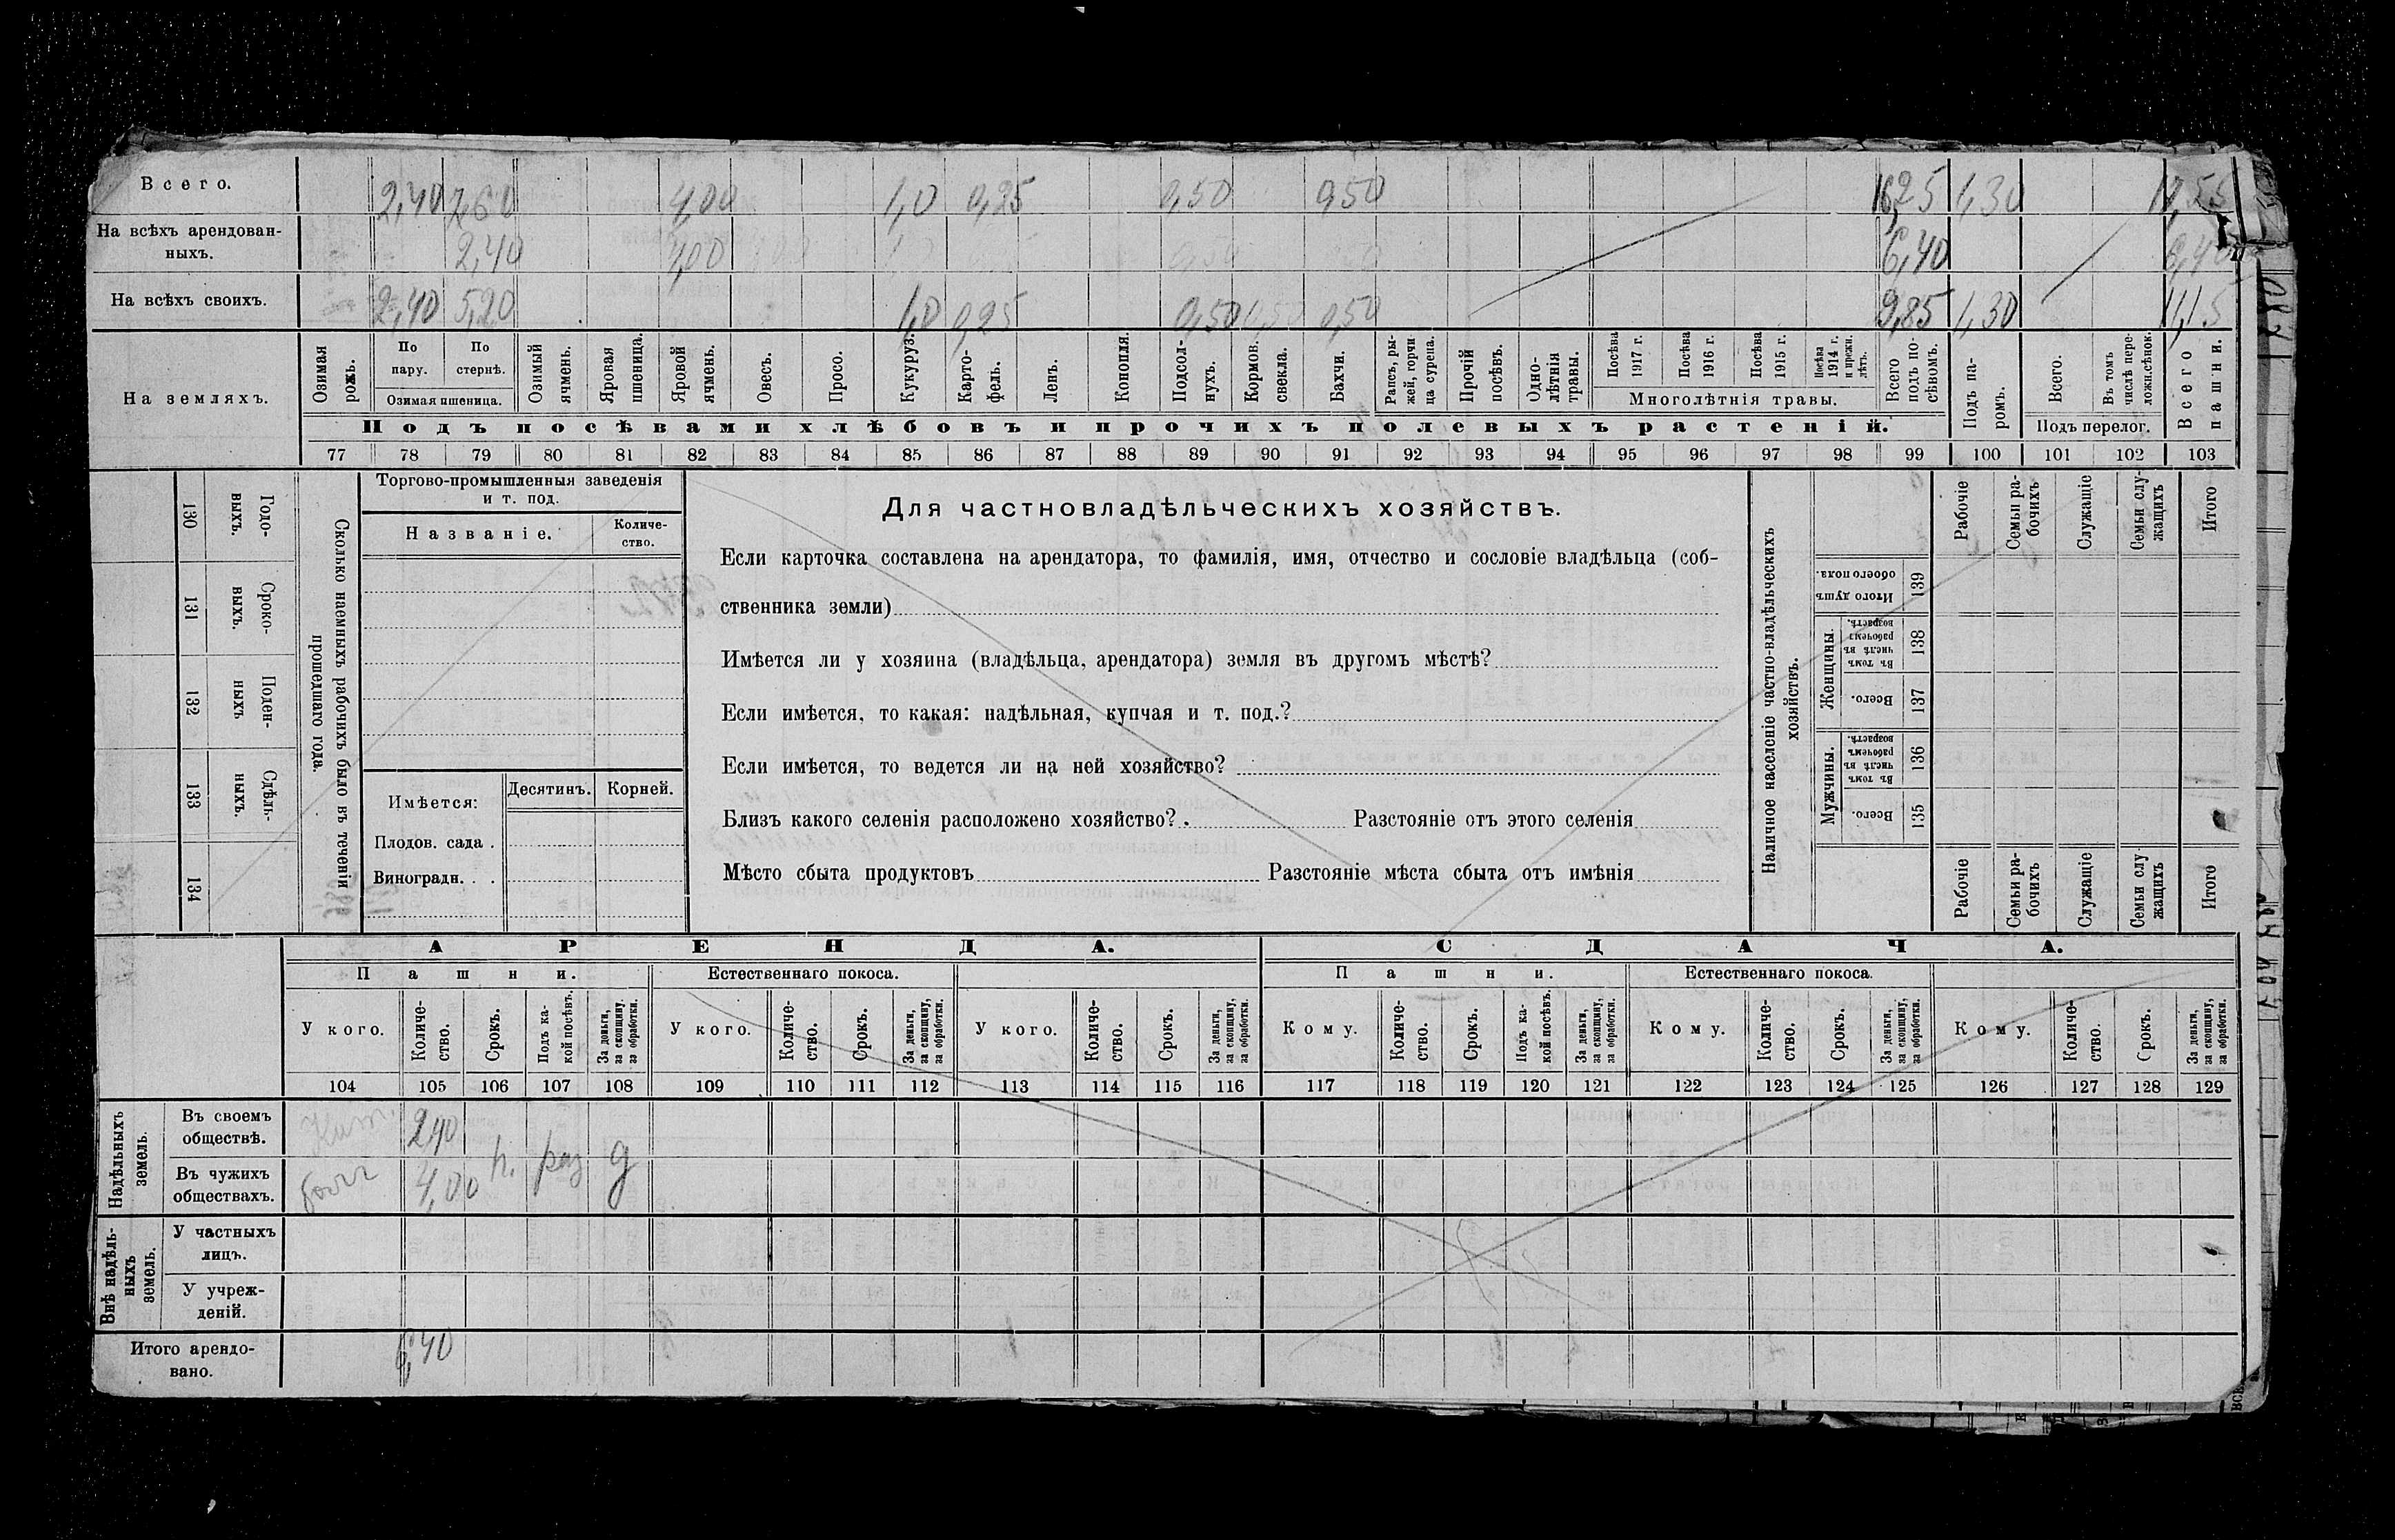 Всего. 2,40 7,60 4,00 1,0 0,25 0,50 0,50 16,25 1,30 17,55
На всѣхъ арендован-
ныхъ. 2,40 4,00 6,40 6,40
На всѣхъ своихъ. 2,40 5,20 1,0 0,25 0,50 0,50 0,50 9,85 1,30 11,15
На земляхъ.
Озимая рожь.
По пару.
По стернѣ.
Озимая пшеница.
Озимый ячмень.
Яровая пшеница.
Яровой ячмень.
Овесъ.
Просо.
Кукуруз.
Карто-
фель.
Ленъ.
Конопля.
Подсол-
нухъ.
Кормов. свекла.
Бахчи.
Рапсъ, ры-
жей, горчи-
ца сурепа.
Прочій посѣвъ.
Одно-
лѣтнія травы.
Посѣва 1917 г.
Посѣва 1916 г.
Посѣва 1915 г.
Посѣва 1914 г. и прежн. лѣтъ.
Многолѣтнія травы.
Всего подъ по-
сѣвомъ.
Подъ па-
ромъ.
Всего.
Въ томъ числѣ пере-
ложн.сѣнок.
Подъ перелог.
Всего пашни.
Подъ посѣвами хлѣбовъ и прочихъ полевыхъ растеній.
77 78 79 80 81 82 83 84 85 86 87 88 89 90 91 92 93 94 95 96 97 98 99 100 101 102 103
Сколько наемныхъ рабочихъ было въ теченіи
прошедшаго года.
Годо-
выхъ.
130
Сроко-
выхъ.
131
Поден-
ныхъ
132
Сдѣль-
ныхъ.
133
134
Торгово-промышленныя заведенія
и т. под.
Названіе.
Количе-
ство.
Имѣется:
Десятинъ. Корней.
Плодов. сада .
Виноградн. .
Для частновладѣльческихъ хозяйствъ.
Если карточка составлена на арендатора, то фамилія, имя, отчество и сословіе владѣльца (соб-
ственника земли)
Имѣется ли у хозяина (владѣльца, арендатора) земля въ другомъ мѣстѣ?
Если имѣется, то какая: надѣльная, купчая и т. под.?
Если имѣется, то ведется ли на ней хозяйство?
Близъ какого селенія расположено хозяйство? . Разстояніе отъ этого селенія
Мѣсто сбыта продуктовъ Разстояніе мѣста сбыта отъ имѣнія
Наличное населеніе частно-владѣльческихъ
хозяйствъ.
Рабочіе
Семьи ра-
бочихъ
Служащіе
Семьи слу-
жащихъ
Итого
Итого душъ
обоего пола.
139
Женщины.
Въ томъ
числѣ въ
рабочемъ
возрастѣ.
138
Всего.
137
Мужчины.
Въ томъ
числѣ въ
рабочемъ
возрастѣ.
136
Всего.
135
Рабочіе
Семьи ра-
бочихъ
Служащіе
Семьи слу
жащихъ
Итого
АРЕНДА. СДАЧА.
Пашни. Естественнаго покоса. Пашни. Естественнаго покоса.
У кого.
Количе-
ство.
Срокъ.
Подъ ка-
кой посѣвъ.
За деньги,
за скопщину,
за обработки.
У кого.
Количе-
ство.
Срокъ.
За деньги,
за скопщину,
за обработки.
У кого.
Количе-
ство.
Срокъ.
За деньги,
за скопщину,
за обработки.
Кому.
Количе-
ство.
Срокъ.
Подъ ка-
кой посѣвъ.
За деньги,
за скопщину,
за обработки.
Кому.
Количе-
ство.
Срокъ.
За деньги,
за скопщину,
за обработки.
Кому.
Количе-
ство.
Срокъ.
За деньги,
за скопщину,
за обработки.
104 105 106 107 108 109 110 111 112 113 114 115 116 117 118 119 120 121 122 123 124 125 126 127 128 129
Надѣльныхъ
земель.
Въ своемъ
обществѣ. 2,40
Въ чужихъ
обществахъ. 4,00 раз д
Внѣ надѣль-
ныхъ
земель.
У частныхъ
лицъ.
У учреж-
деній.
Итого арендо-
вано. 6,40